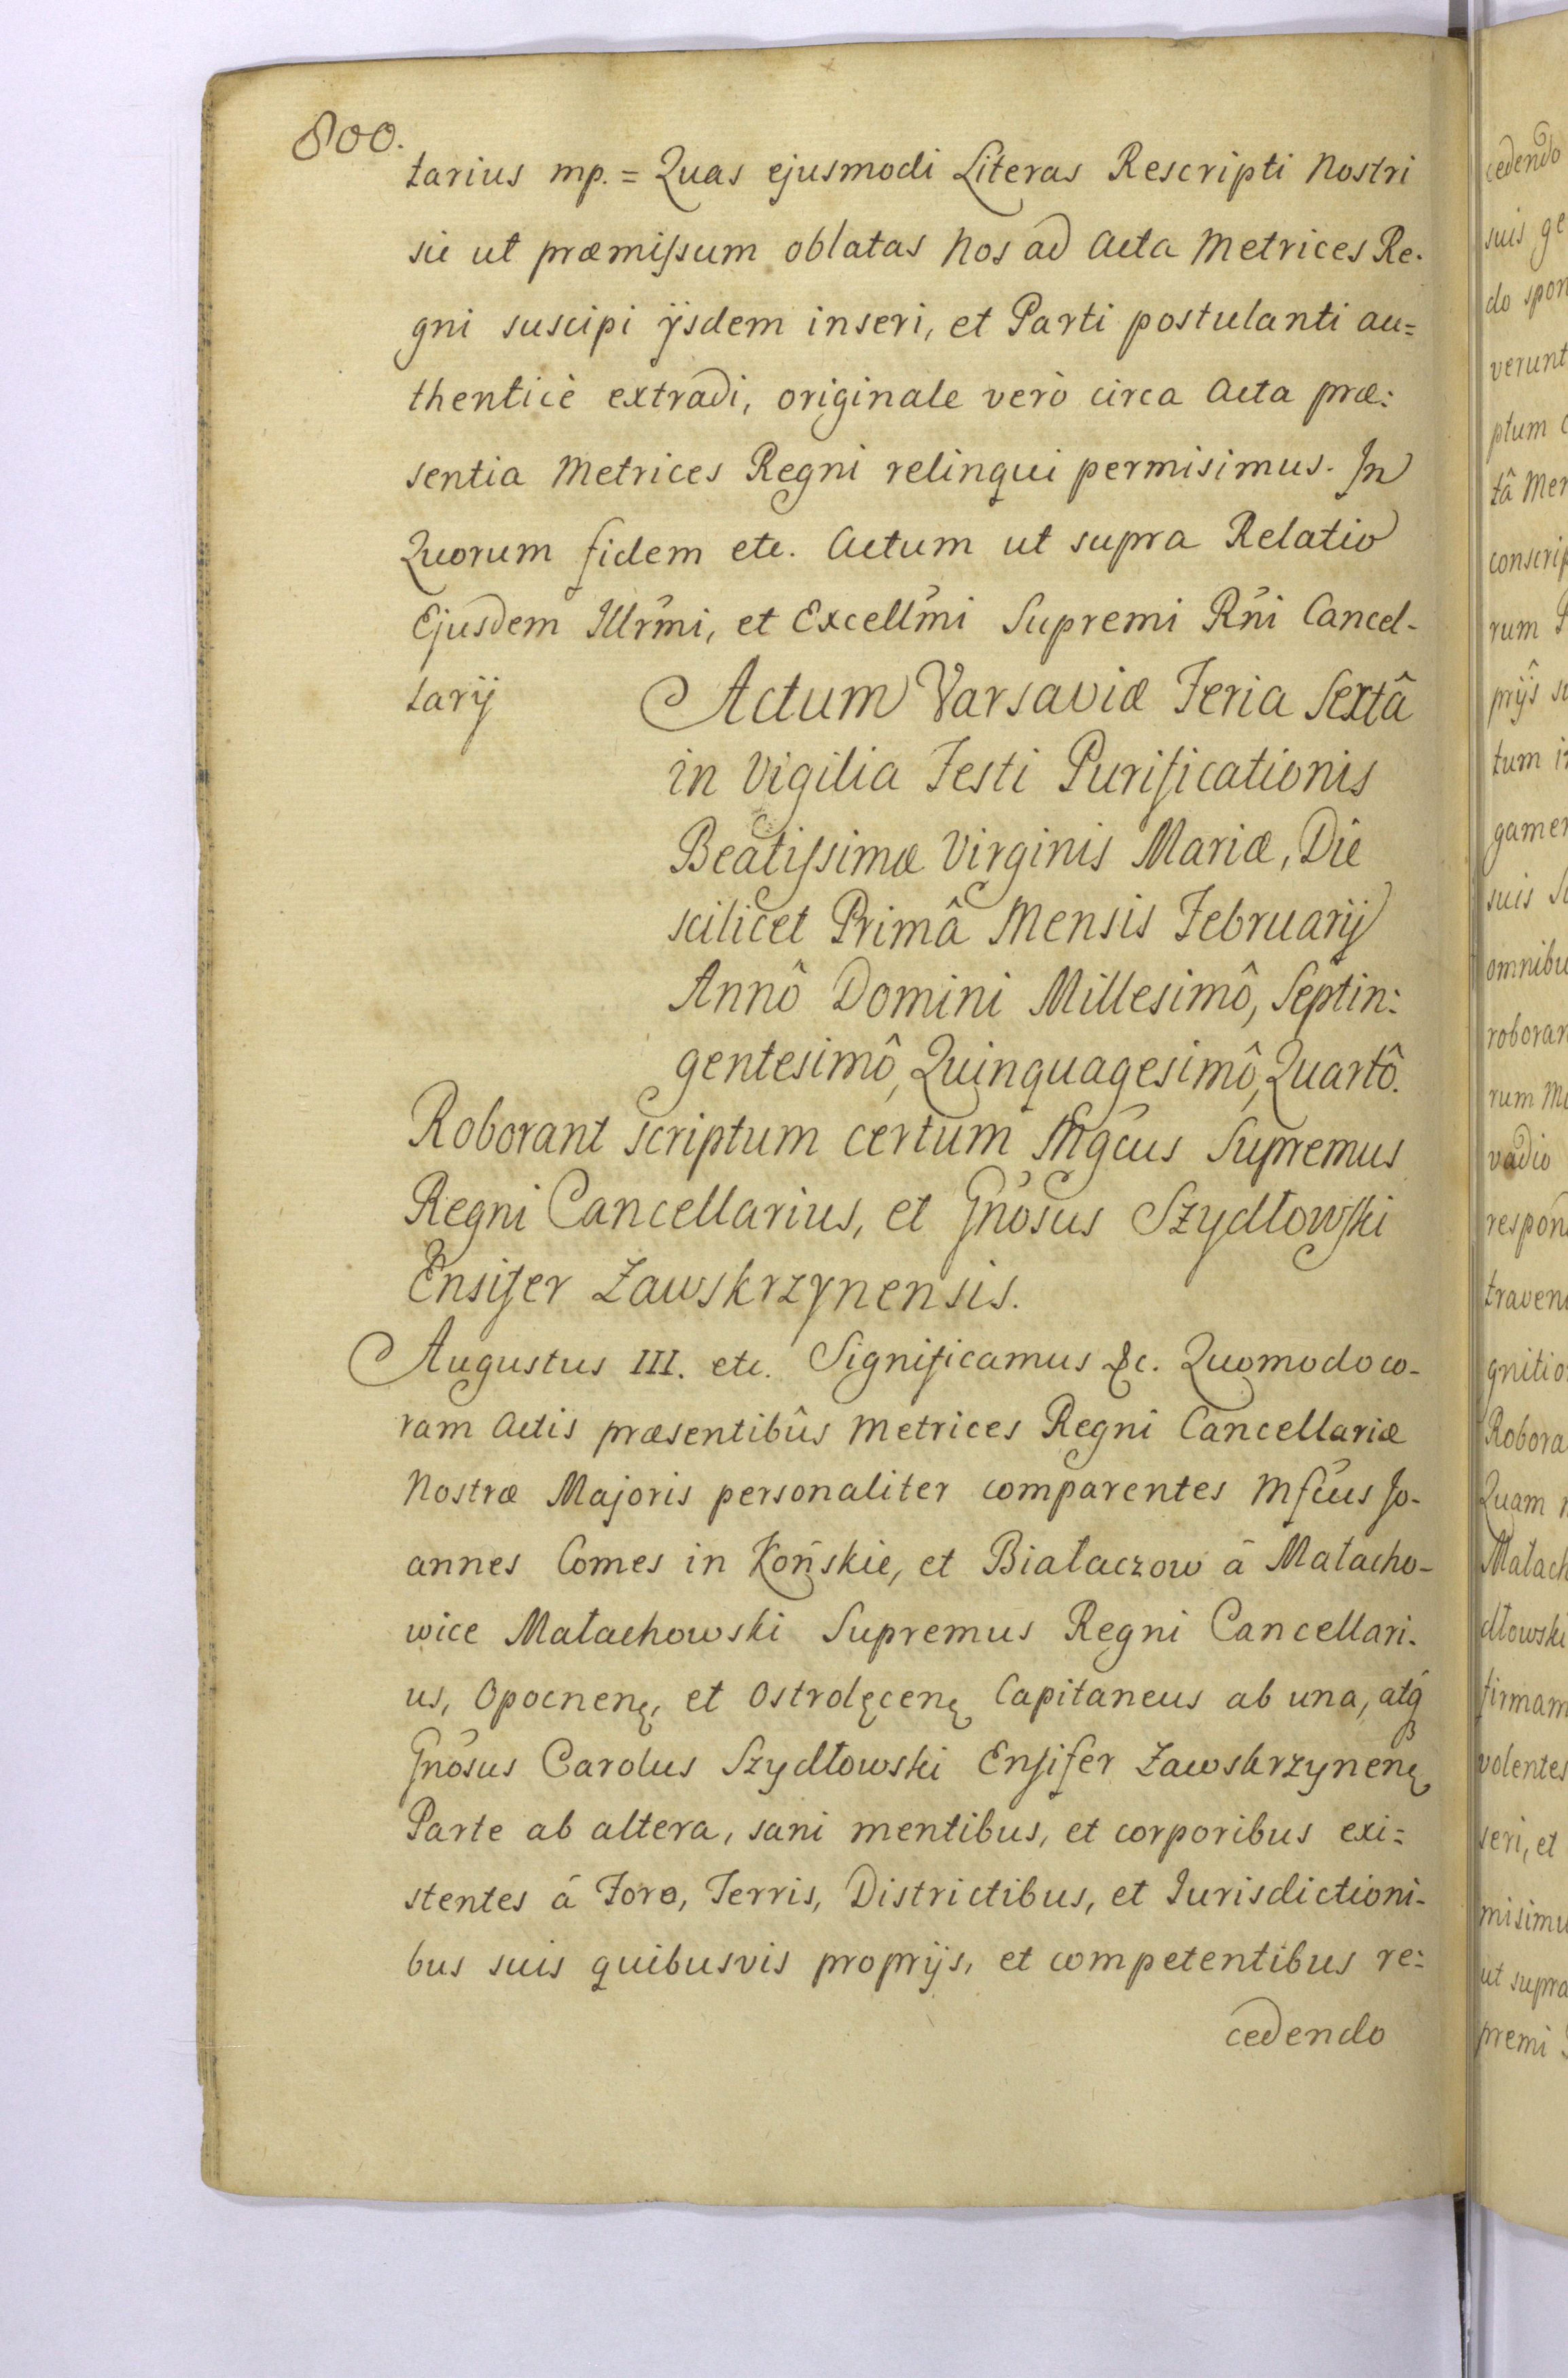 800.
tarius mp. = Quas ejusmodi Literas Rescripti Nostri
sic ut præmissum oblatas Nos ad Acta Metrices Re-
gni suscipi ijsdem inseri, et Parti postulanti au=
thenticè extradi, originale verò circa Acta præ:
sentia Metrices Regni relinqui permisimus. In
Quorum fidem etc. Actum ut supra Relatio
Ejusdem Illr̃mi, et Excellm̃i Supremi Rñi Cancel-
larij
Actum Varsaviæ Feria Sextâ
in Vigilia Festi Purificationis
Beatissimæ Virginis Mariæ, Die
scilicet Primâ Mensis Februarij
Annô Domini Millesimô, Septin:
gentesimô, Quinquagesimô, Quartô.
Roborant scriptum certum Mgc̃us Supremus
Regni Cancellarius, et Gñosus Szydłowski
Ensifer Zawskrzynensis.
Augustus III. etc. Significamus &c. Quomodo co-
ram Actis præsentibûs Metrices Regni Cancellariæ
Nostræ Majoris personaliter comparentes Mfc̃us Jo-
annes Comes in Końskie, et Białaczow â Małacho-
wice Małachowski Supremus Regni Cancellari-
us, Opocnenę, et Ostrolęcenę Capitaneus ab una, atq́
Gñosus Carolus Szydłowski Ensifer Zawskrzynenę
Parte ab altera, sani mentibus, et corporibus exi=
stentes â Foro, Terris, Districtibus, et Jurisdictioni-
bus suis quibusvis proprijs, et competentibus re:
cedendo
cedendo
suis ge
do spon
verunt
ptum
tâ Men
conscrip
rum
prijs su
tum in
gamen
suis
omnibu
roboran
rum
vadio
respon
traven
gnitio
Robora
Quam
Małach
dłowski
firmam
volentes
seri, et
misimu
ut supra
premi